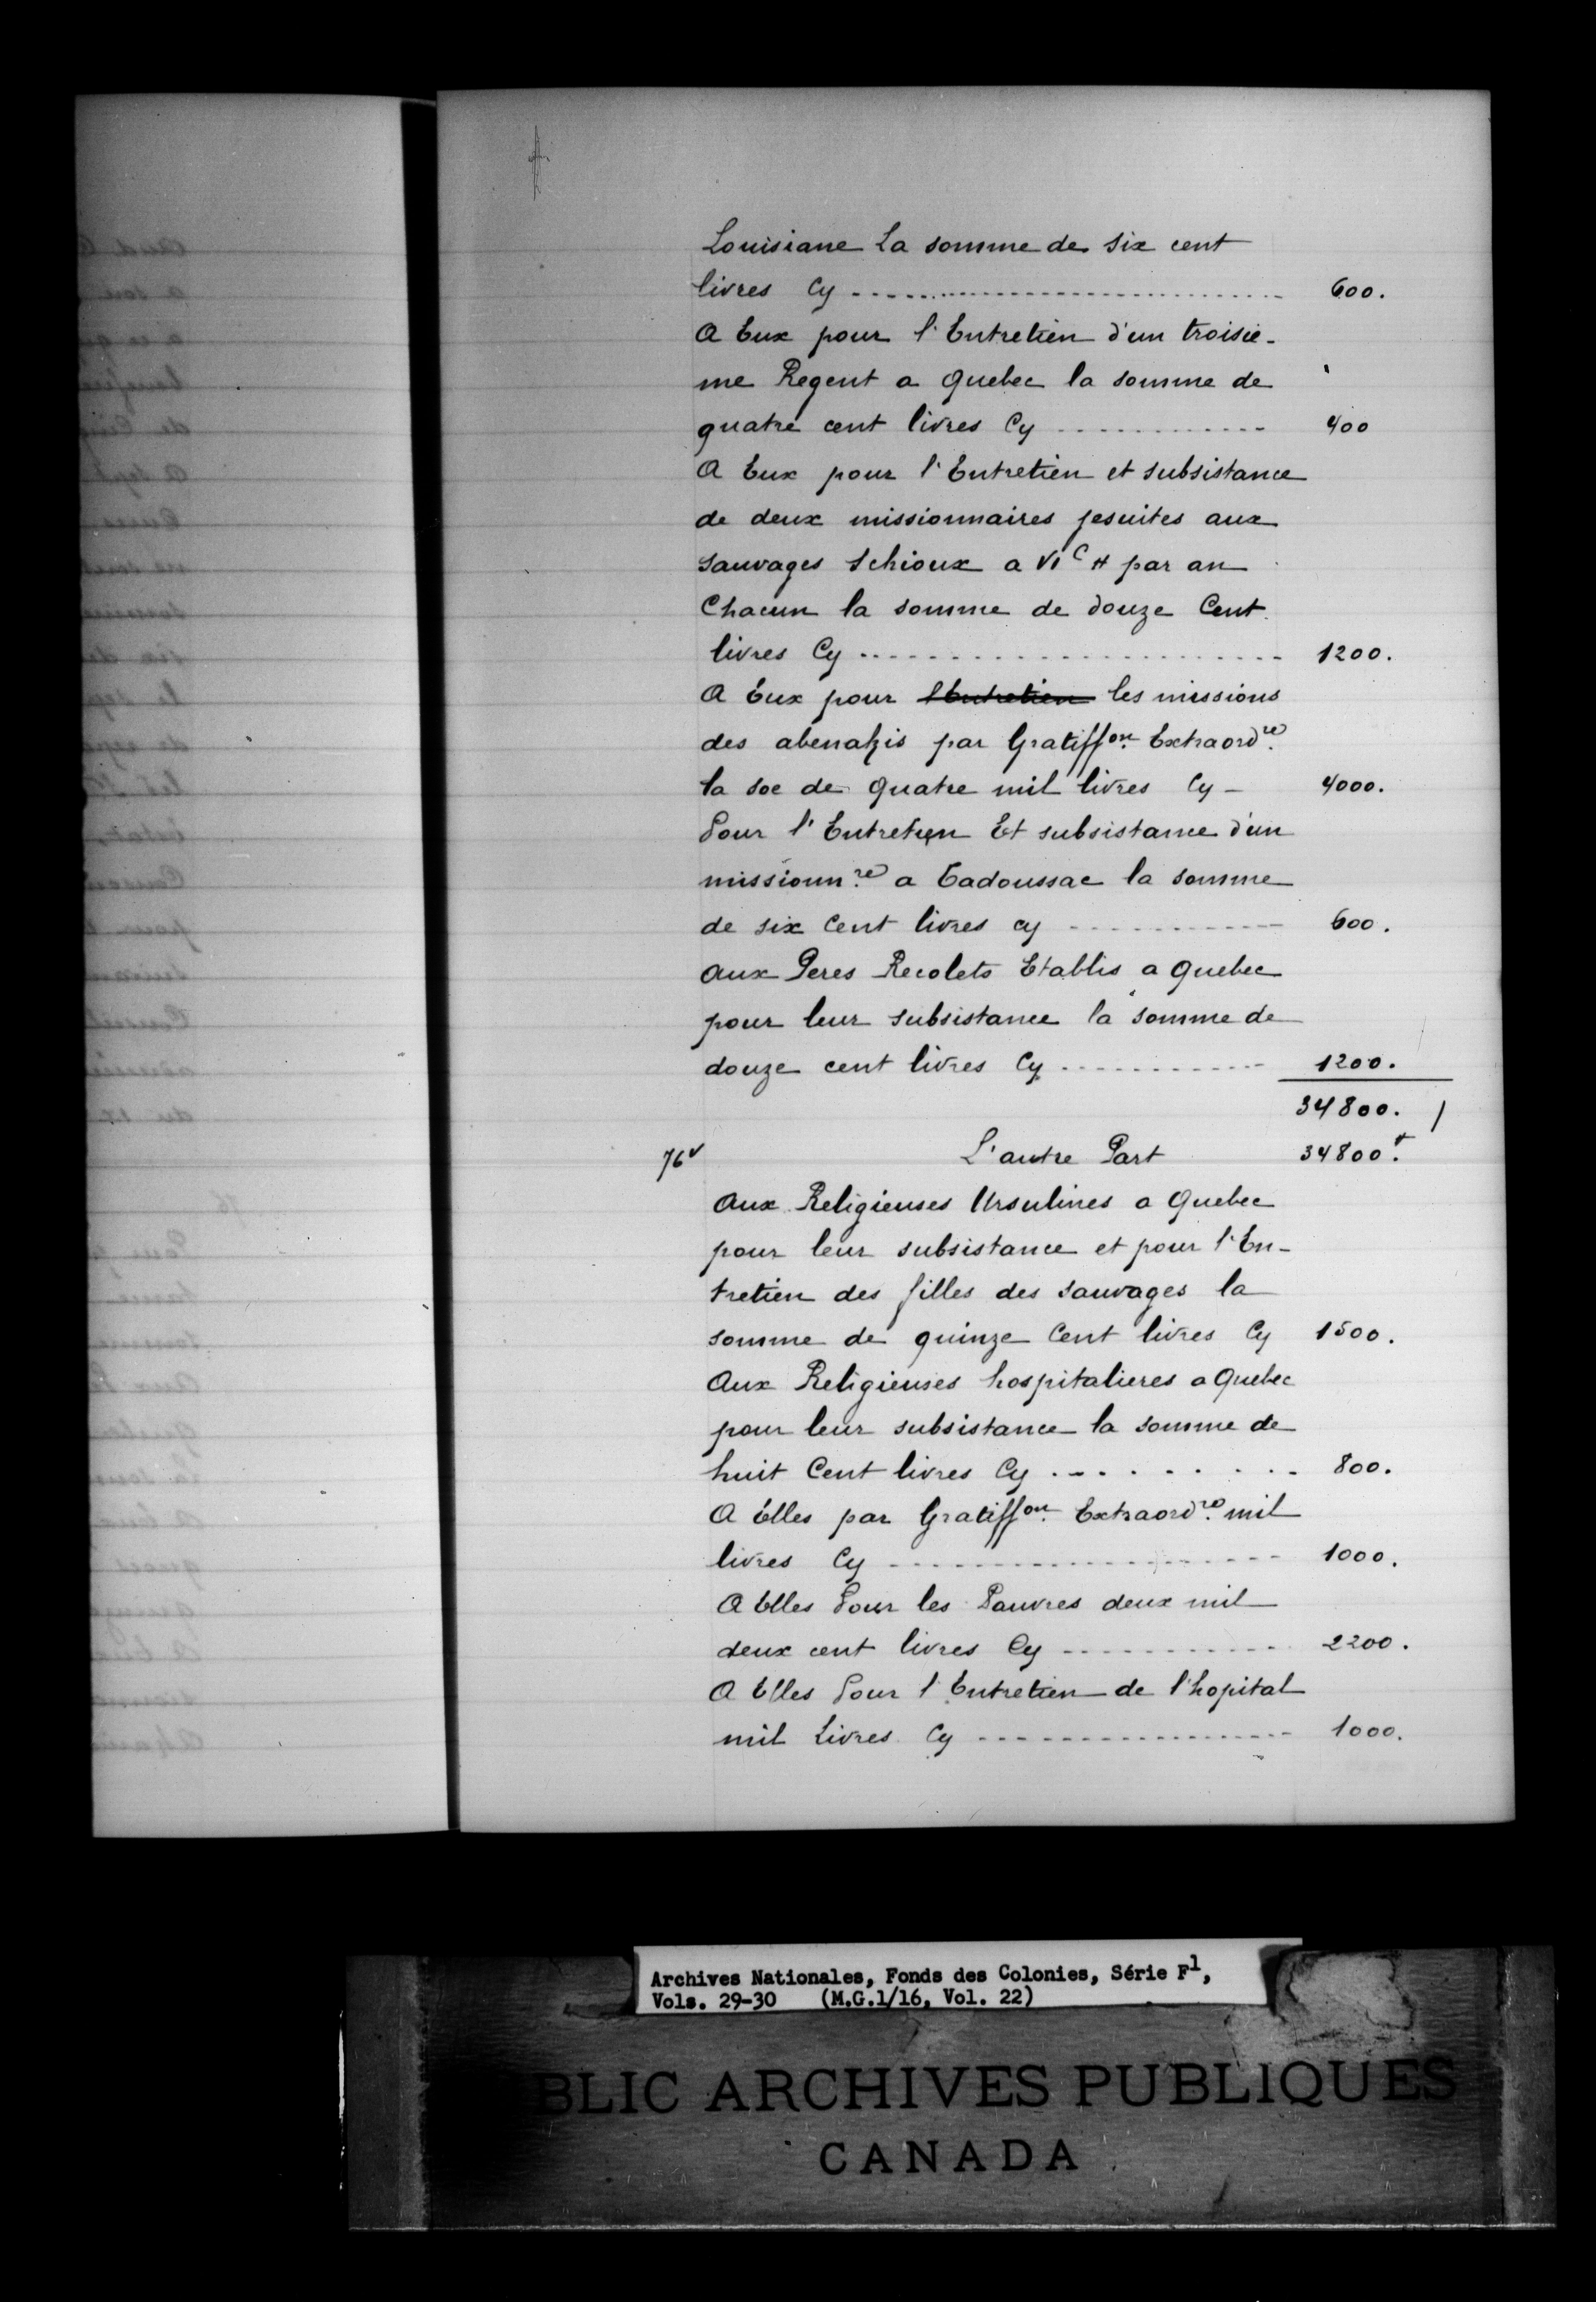 Louisiane La somme de six cent
livres Cy ------------------------ 600.
A Eux pour l'Entretien d'un troisie-
me Regent a Quebec la somme de
quatre cent livres Cy ------------ 400
A Eux pour l'Entretien et subsistance
de deux missionnaires jesuites aux
sauvages Schioux a VI^C ₶ par an
Chacun la somme de douze Cent
livres Cy ------------------------ 1200.
A Eux pour ~~l'Entretien~~ les missions
des abenakis par Gratiff^on. Extraord^re.
la soe de quatre mil livres Cy - 4000.
Pour l'Entretien Et subsistance d'un
missionn^re. a Tadoussac la somme
de six Cent livres cy ------------ 600.
aux Peres Recolets Etablis a Quebec
pour leur subsistance la somme de
douze cent livres Cy ------------ 1200.
34800. /
76^v L'autre Part 34800^₶.
Aux Religieuses Ursulines a Quebec
pour leur subsistance et pour l'En-
tretien des filles des sauvages la
somme de quinze Cent livres Cy 1500.
Aux Religieuses hospitalieres a Quebec
pour leur subsistance la somme de
huit Cent livres Cy ---------- 800.
A Elles par Gratiff^on. Extraord^re. mil
livres Cy -------------------- 1000.
A Elles Pour les Pauvres deux mil
deux cent livres Cy ------------ 2200.
A Elles Pour l'Entretien de l'hopital
mil Livres Cy ------------------ 1000.
Archives Nationales, Fonds des Colonies, Série F^1,
Vols. 29-30 (M.G.1/16, Vol. 22)
BLIC ARCHIVES PUBLIQUES
CANADA